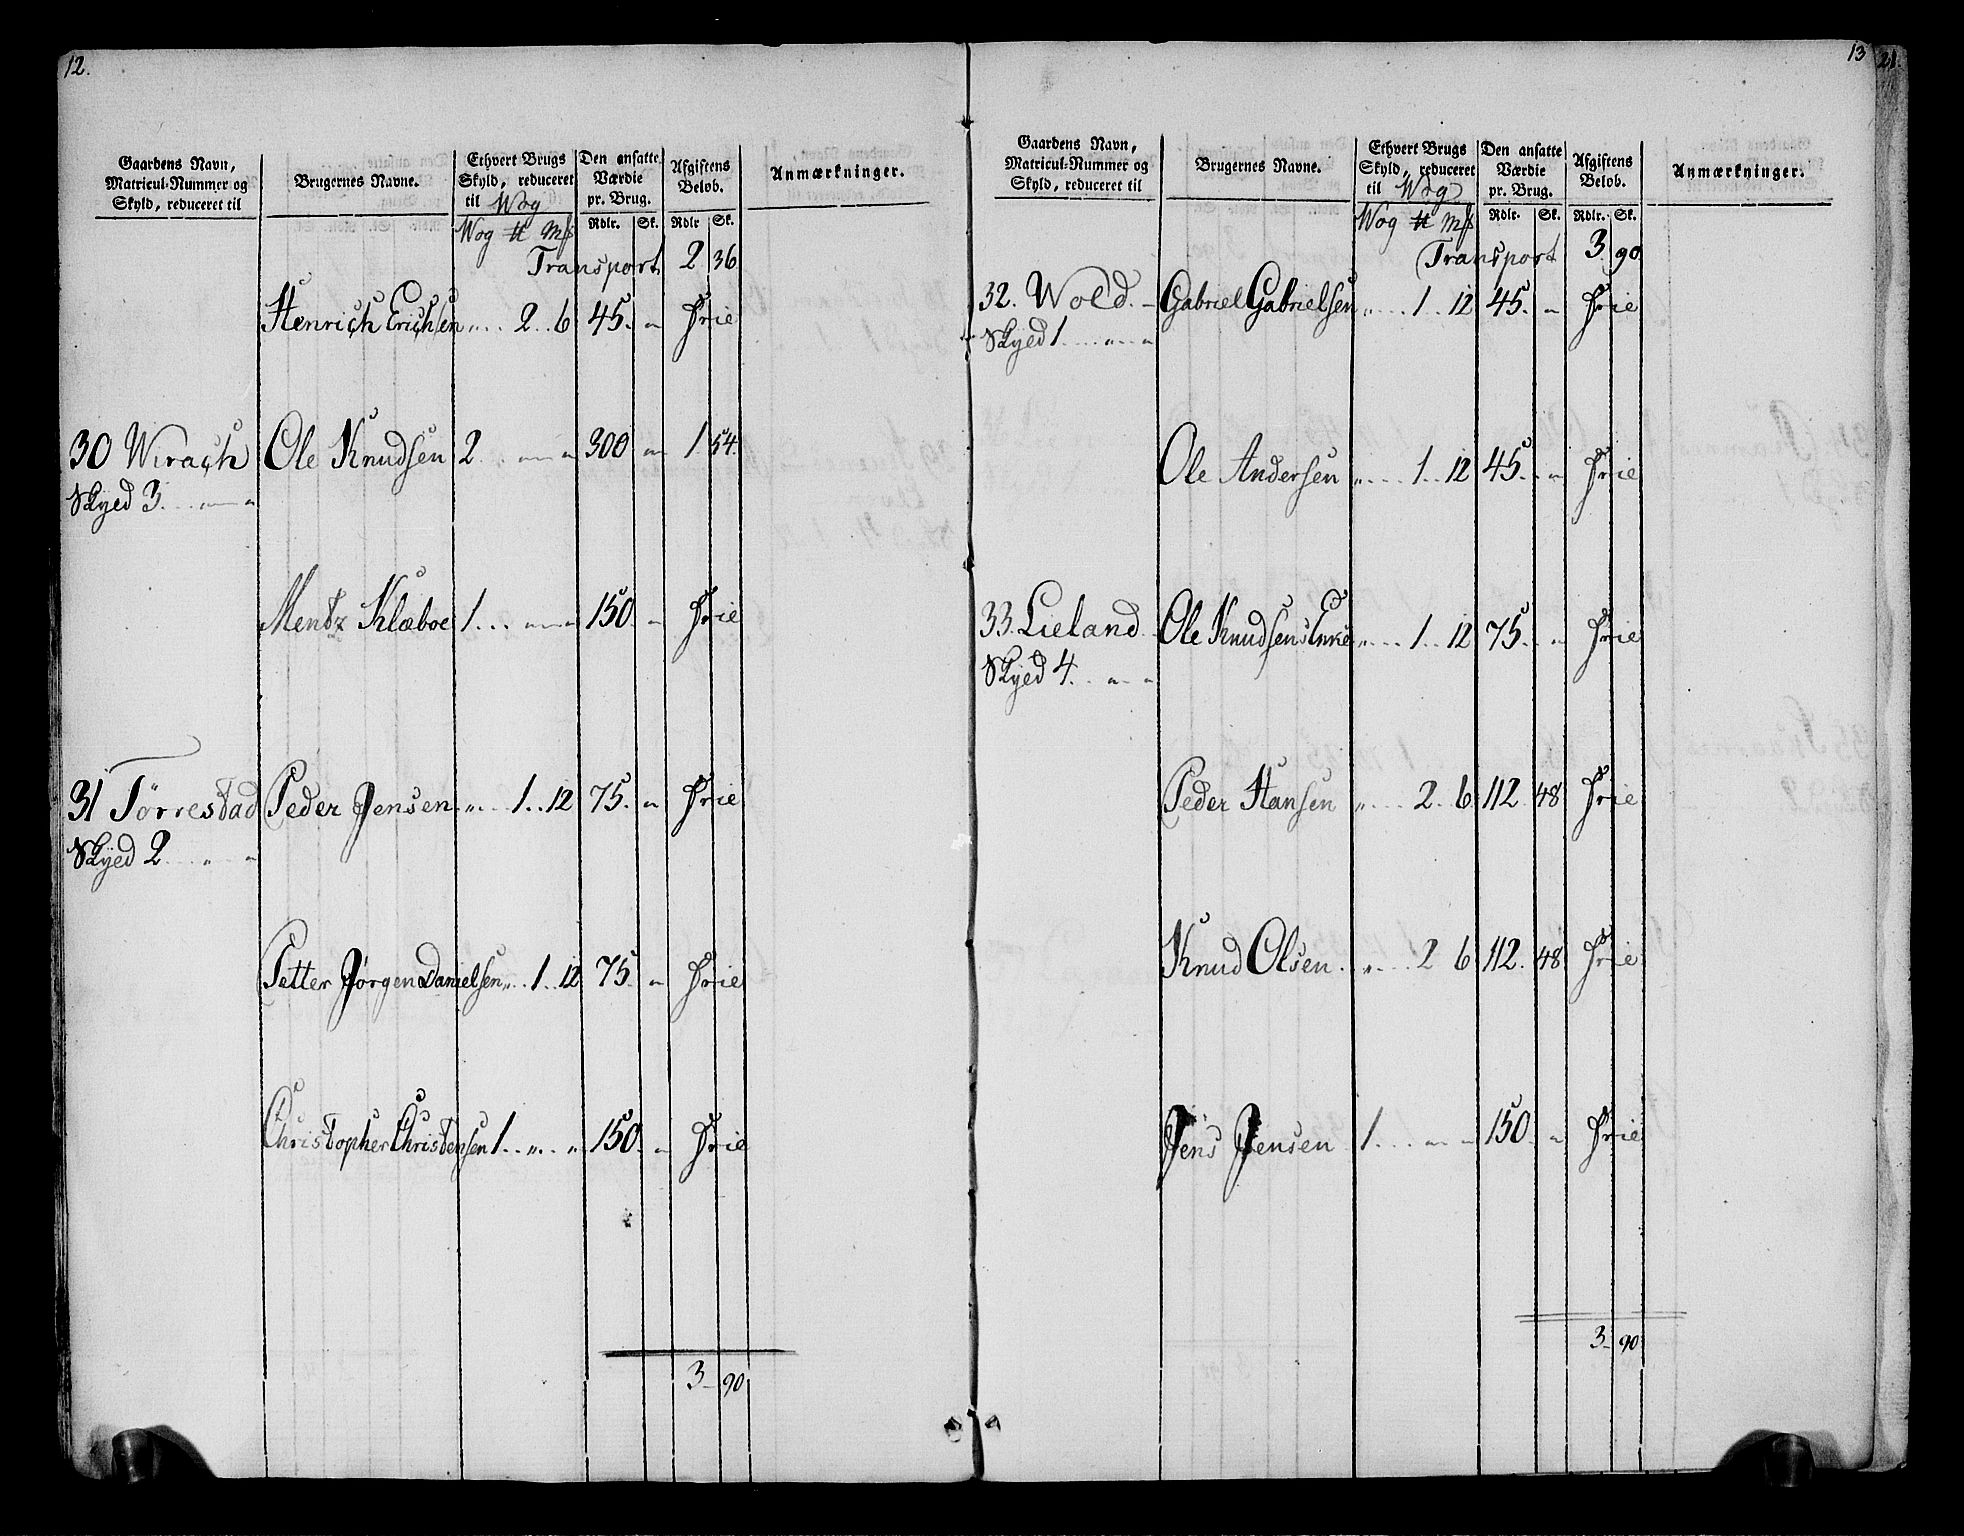 12.
Gaardens Navn, Matricul-Nummer og Skyld, reduceret til | Brugernes Navne. | Ethvert Brugs Skyld, reduceret til Wog | Den ansatte Værdie pr. Brug. | Afgiftens Belob. | Anmærkninger.
Wog ℔ Mk | Rdlr. | Sk. | Rdlr | Sk.
Transport 2 36
Henrich Erichsen „ 2 6 45 „ Frie
30 Wirach Ole Knudsen 2 „ „ 300 „ 1 54
Skyed 3 „ „
Mentz Klæboe 1 „ „ 150 „ Frie
31 Törrestad Peder Jensen „ 1 12 75 „ Frie
Skyed 2 „ „
Petter Jørgen Danielsen „ 1 12 75 „ Frie
Christopher Christensen 1 „ „ 150 „ Frie
3 90
13
21.
Gaardens Navn, Matricul-Nummer og Skyld, reduceret til | Brugernes Navne. | Ethvert Brugs Skyld, reduceret til Wog | Den ansatte Værdie pr. Brug. | Afgiftens Belob. | Anmærkninger.
Wog ℔ Mk | Rdlr. | Sk. | Rdlr. | Sk.
Transport 3 90
32. Wold Gabriel Gabrielsen „ 1 12 45 „ Frie
Skyed 1 „ „
Ole Andersen „ 1 12 45 „ Frie
33. Lieland Ole Knudsens Enke „ 1 12 75 „ Frie
Skyed 4 „ „
Peder Hansen „ 2 6 112 48 Frie
Knud Olsen „ 2 6 112 48 Frie
Jens Jensen 1 „ „ 150 „ Frie
3 90